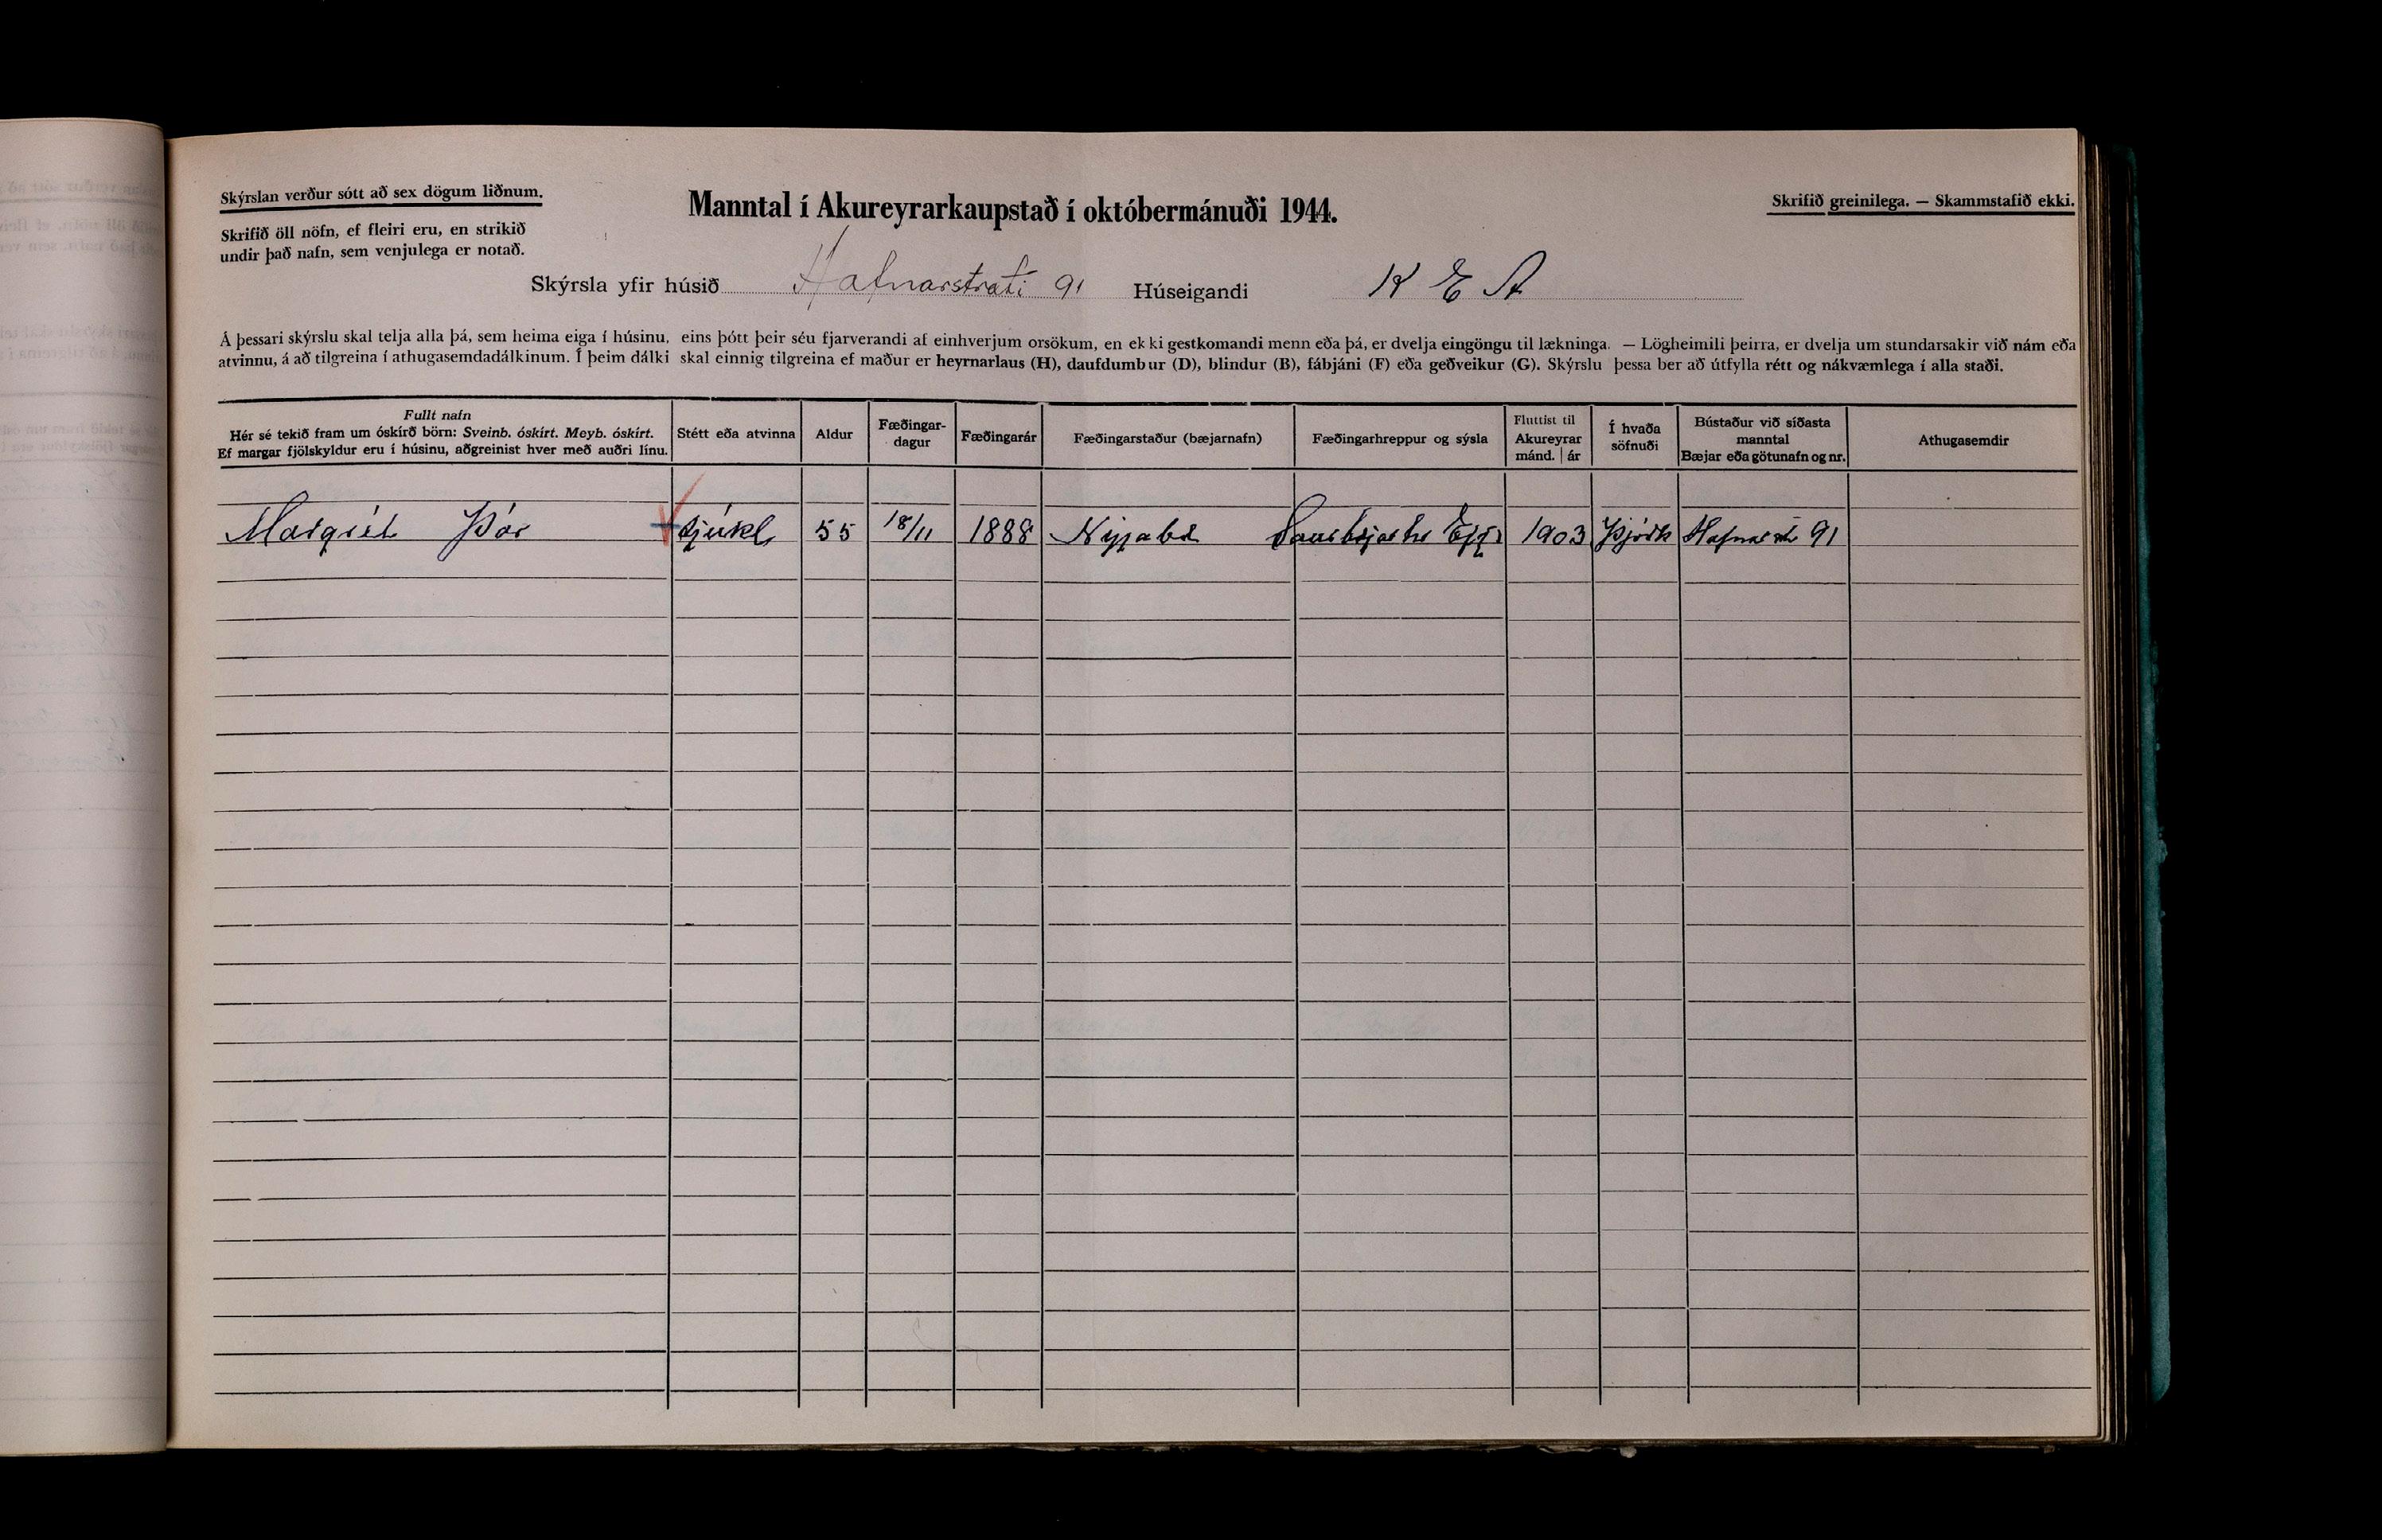 Skýrslan verður sótt að sex dögum liðnum.
Skrifið öll nöfn, ef fleiri eru, en strikið
undir það nafn, sem venjulega er notað.
Manntal í Akureyrarkaupstað í októbermánuði 1944.
Skrifið greinilega. — Skammstafið ekki.
Skýrsla yfir húsið Hafnarstræti 91 Húseigandi K E A
Á þessari skýrslu skal telja alla þá, sem heima eiga í húsinu, eins þótt þeir séu fjarverandi af einhverjum orsökum, en ekki gestkomandi menn eða þá, er dvelja eingöngu til lækninga. — Lögheimili þeirra, er dvelja um stundarsakir við nám eða
atvinnu, á að tilgreina í athugasemdadálkinum. Í þeim dálki skal einnig tilgreina ef maður er heyrnarlaus (H), daufdumbur (D), blindur (B), fábjáni (F) eða geðveikur (G). Skýrslu þessa ber að útfylla rétt og nákvæmlega í alla staði.
Fullt nafn
Hér sé tekið fram um óskírð börn: Sveinb. óskírt. Meyb. óskírt.
Ef margar fjölskyldur eru í húsinu, aðgreinist hver með auðri línu.
Stétt eða atvinna
Aldur
Fæðingar-
dagur
Fæðingarár
Fæðingarstaður (bæjarnafn)
Fæðingarhreppur og sýsla
Fluttist til
Akureyrar
mánd. | ár
Í hvaða
söfnuði
Bústaður við síðasta
manntal
Bæjar eða götunafn og nr.
Athugasemdir
Margrét Þór sjúkl 55 18/11 1888 1903 Þjóðk Hafnarstr 91